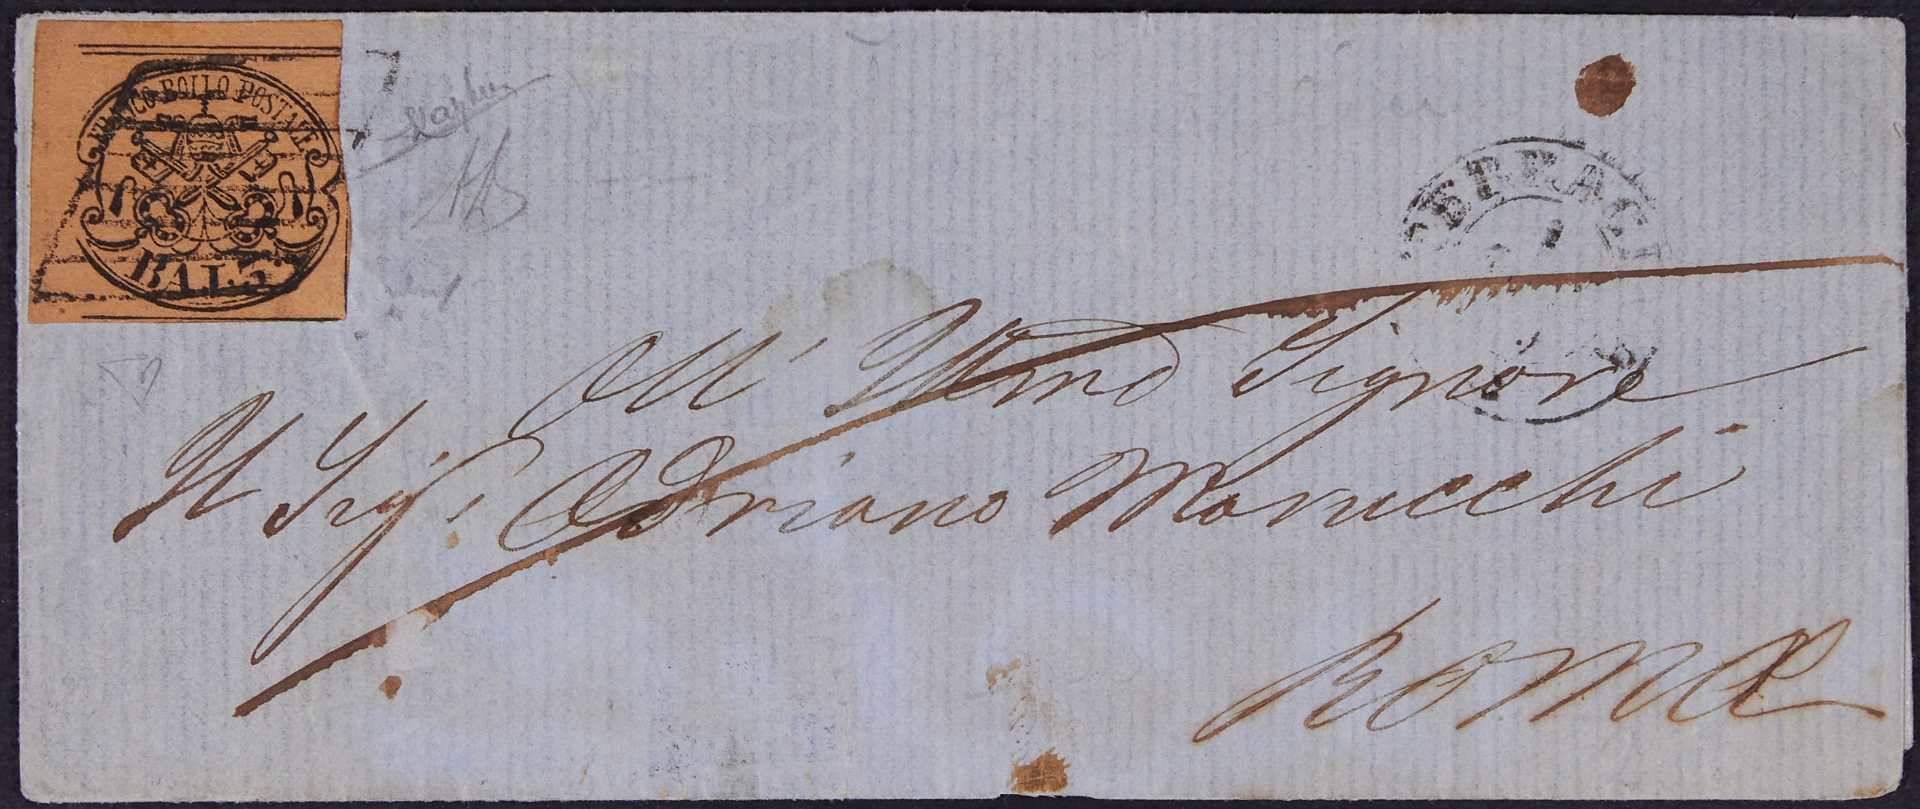 FRANCO BOLLO POSTALE
BAJ. 3
TERRACI
All' Illmo Signore
Il Sig. Adriano Marucchi
Roma